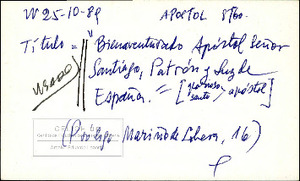 W 25-10-89 APOSTOL 8/60.
Título = "Bienaventurado Apóstol Señor
Santiago, Patrón y Luz de
España. = [glorioso santo y apóstol]
usado
(Rodrigo Mariño de Lobera, 16)